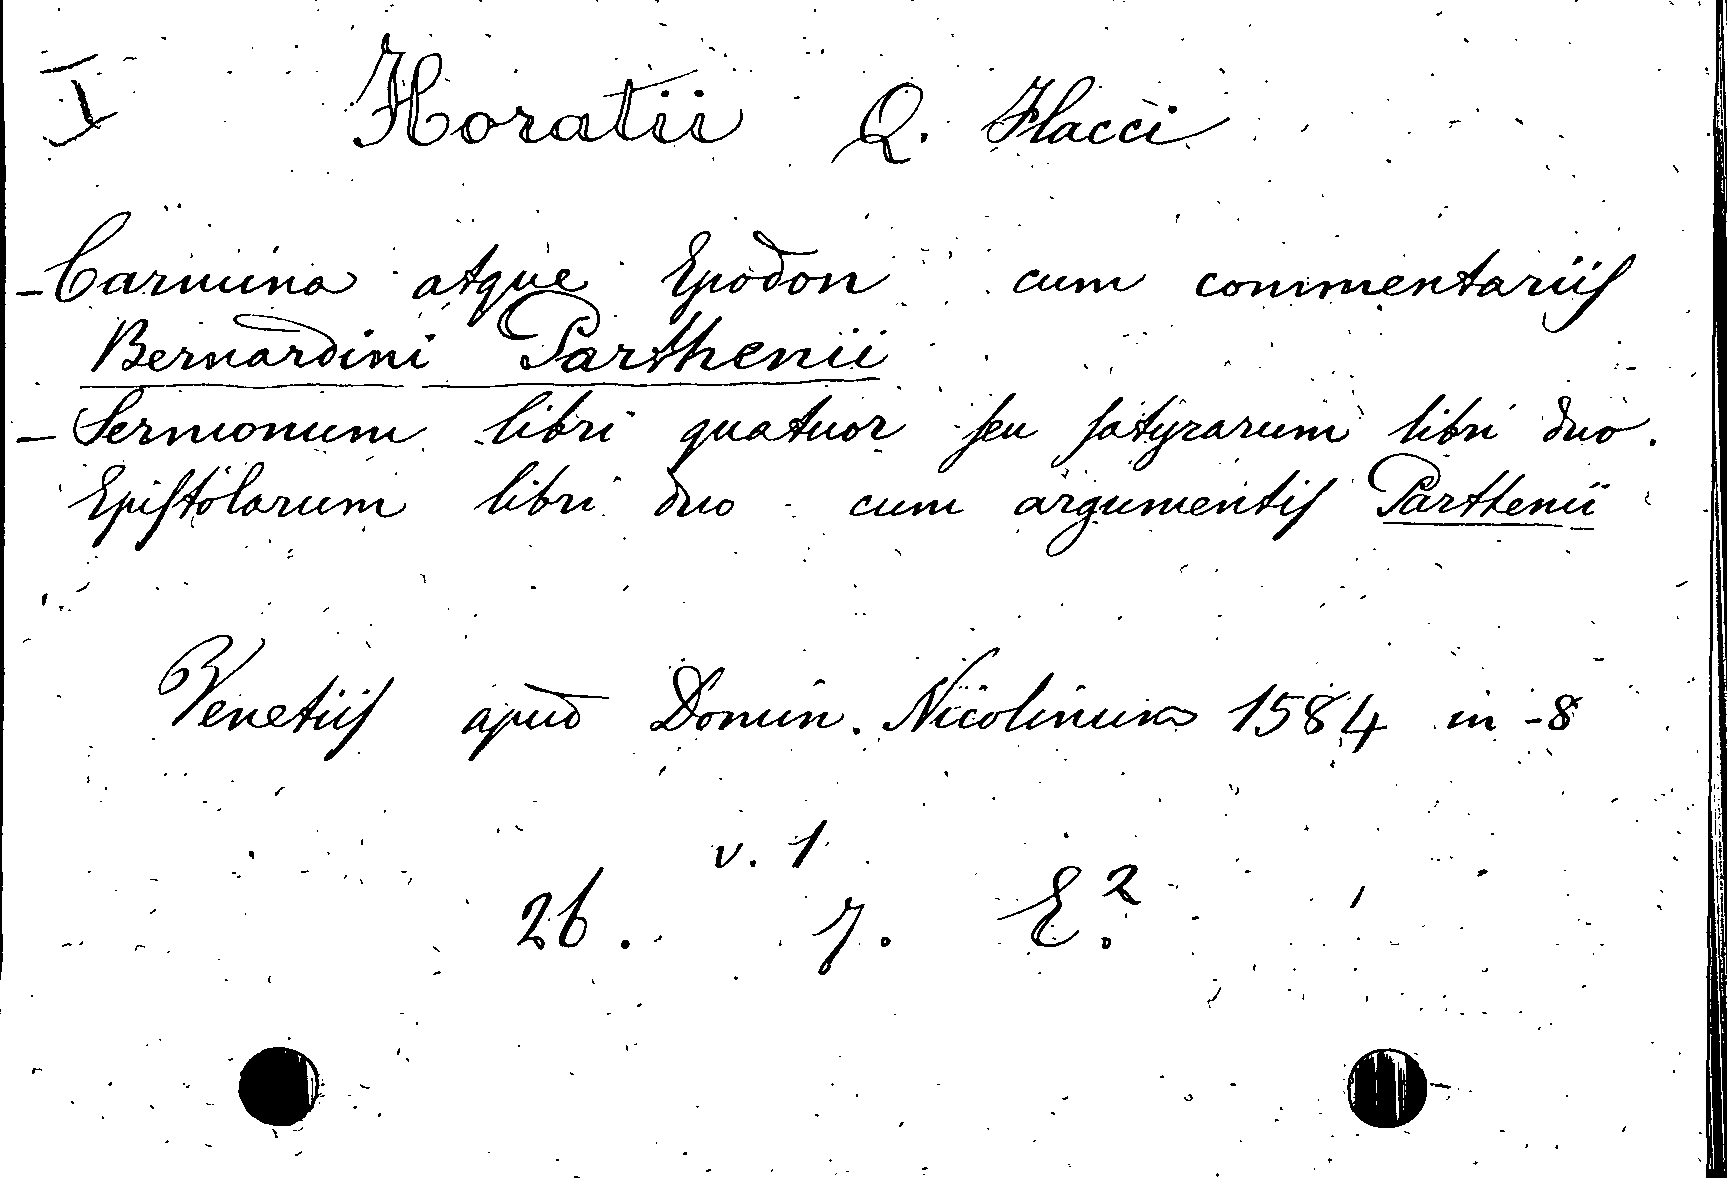 I Horatii Q. Flacci
- Carmina atque Epodon cum commentariis
Bernardini Parthenii
- Sermonum libri quatuor seu satyrarum libri duo.
Epistolarum libri duo cum argumentis Parthenii
Venetiis apud Domin. Nicolinum 1584 in -8
v. 1
26. 7. E.²